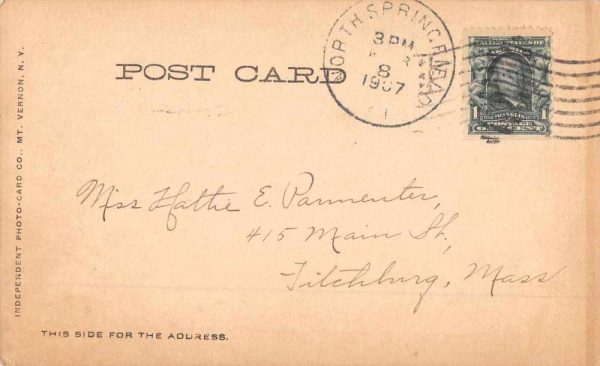 POST CARD
NORTH SPRINGFIELD
3 PM
8
1907
1
UNITED STATES OF
FRANKLIN
1 1
POSTAGE
ONE CENT
Miss Hattie E. Parmenter,
415 Main St.,
Fitchburg, Mass
THIS SIDE FOR THE ADDRESS.
INDEPENDENT PHOTO-CARD CO., MT. VERNON, N. Y.